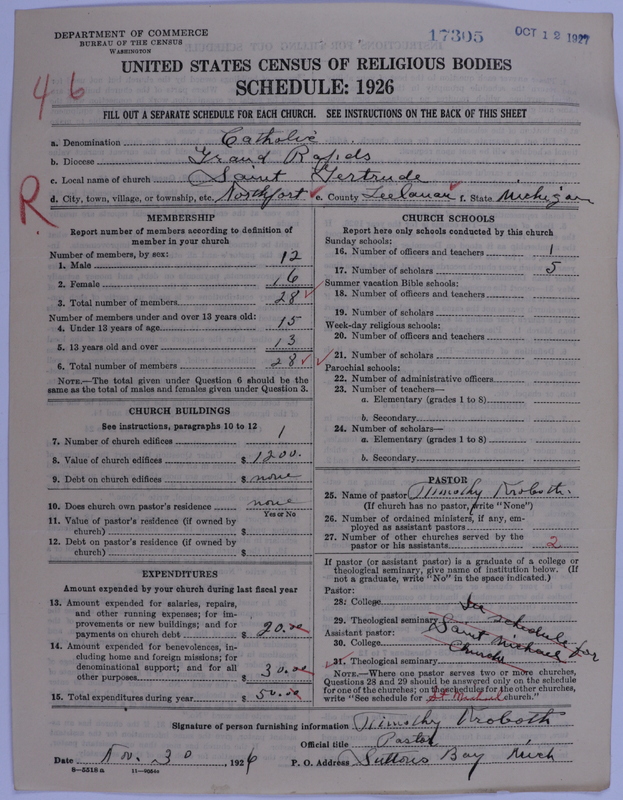 DEPARTMENT OF COMMERCE
BUREAU OF THE CENSUS
WASHINGTON
17305
OCT 12 1927
UNITED STATES CENSUS OF RELIGIOUS BODIES
SCHEDULE: 1926
46
R
FILL OUT A SEPARATE SCHEDULE FOR EACH CHURCH. SEE INSTRUCTIONS ON THE BACK OF THIS SHEET
a. Denomination Catholic
b. Diocese Grand Rapids
c. Local name of church Saint Gertrude
d. City, town, village, or township, etc. Northport e. County Leelanau f. State Michigan
MEMBERSHIP
Report number of members according to definition of
member in your church
Number of members, by sex:
1. Male 12
2. Female 16
3. Total number of members 28
Number of members under and over 13 years old:
4. Under 13 years of age 15
5. 13 years old and over 13
6. Total number of members 28
NOTE.—The total given under Question 6 should be the
same as the total of males and females given under Question 3.
CHURCH BUILDINGS
See instructions, paragraphs 10 to 12
7. Number of church edifices 1
8. Value of church edifices $ 1200.
9. Debt on church edifices $ none
10. Does church own pastor's residence none
Yes or No
11. Value of pastor's residence (if owned by
church) $
12. Debt on pastor's residence (if owned by
church) $
EXPENDITURES
Amount expended by your church during last fiscal year
13. Amount expended for salaries, repairs,
and other running expenses; for im-
provements or new buildings; and for
payments on church debt $ 20.00
14. Amount expended for benevolences, in-
cluding home and foreign missions; for
denominational support; and for all
other purposes $ 30.00
15. Total expenditures during year $ 50.00
CHURCH SCHOOLS
Report here only schools conducted by this church
Sunday schools:
16. Number of officers and teachers 1
17. Number of scholars 5
Summer vacation Bible schools:
18. Number of officers and teachers
19. Number of scholars
Week-day religious schools:
20. Number of officers and teachers
21. Number of scholars
Parochial schools:
22. Number of administrative officers
23. Number of teachers—
a. Elementary (grades 1 to 8)
b. Secondary
24. Number of scholars—
a. Elementary (grades 1 to 8)
b. Secondary
PASTOR
25. Name of pastor Timothy Kroboth.
(If church has no pastor, write "None")
26. Number of ordained ministers, if any, em-
ployed as assistant pastors
27. Number of other churches served by the
pastor or his assistants 2
If pastor (or assistant pastor) is a graduate of a college or
theological seminary, give name of institution below. (If
not a graduate, write "No" in the space indicated.)
Pastor:
28. College See schedule for
29. Theological seminary Saint Michael
Assistant pastor:
30. College Church
31. Theological seminary
NOTE.—Where one pastor serves two or more churches,
Questions 28 and 29 should be answered only on the schedule
for one of the churches; on the schedules for the other churches,
write "See schedule for St. Michael church."
Signature of person furnishing information Timothy Kroboth
Official title Pastor
Date Nov. 30, 1926 P. O. Address Suttons Bay Mich
8—5518 a 11—9054a